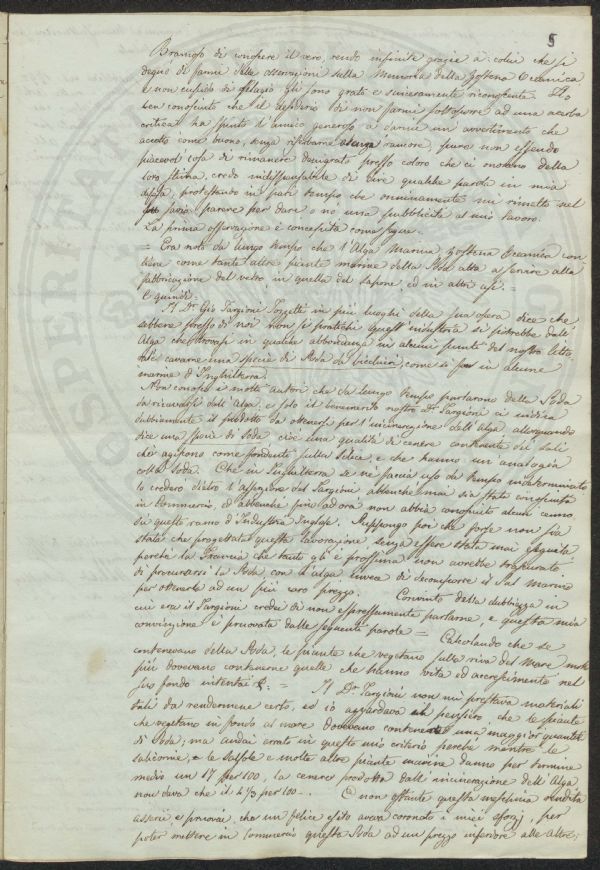 5
Bramoso di conoscere il vero, rendo infinite grazie à colui che si
degnò di farmi delle osservazioni sulla Memoria della Zostera Oceanica
e non gli sono grato e sinceramente riconoscente. Ho
ben conosciuto che il desiderio di non farmi sottoporre ad una acerba
critica ha spinto l'amico generoso a darmi un avvertimento che
accetto come buono, senza rancore, però non essendo
piacevol cosa di rimanere denigrato presso coloro che ci onorano della
loro stima, credo indispensabile di dire qualche parola in mia
difesa, protestando in pari tempo che onninamente mi rimetto nel
suo savio parere per dare o nò, una pubblicità al mio lavoro.
La prima osservazione è concepita come segue.
= Era noto da lungo tempo che l'Alga Marina Zostera Oceanica con
tiene come tante altre piante marine della Soda atta a servire alla
fabbricazione del vetro in quella del sapone, ed in altri usi =
E quindi =
Il Dr. Gio Targioni Tozzetti in più luoghi della sua opera dice che
sebbene presso di noi non si pratichi quest'industria si potrebbe dall'
Alga che trovasi in qualche abbondanza in alcuni punti del nostro litto
rale cavarne una specie di Soda da bicchieri, come si fa in alcune
marine d'Inghilterra.
Non conosco i molti autori che da lungo tempo parlarono della Soda
da ricavarsi dall'Alga, e solo il benemerito nostro Dr. Targioni ci indica
dubbiamente il prodotto da ottenersi per l'incinerazione dell'alga allorquando
dice una specie di Soda, cioè una qualità di cenere contenente dei sali
ch'agiscono come fondente sulla Silice, e che hanno un analogia
colla Soda. Che in Inghilterra se ne faccia uso da tempo indeterminato
lo crederò dietro l'asserzione del Targioni abbenche mai sia stata conosciuta
in Commercio, ed abbenche fin ad ora non abbia conosciuto alcun cenno
su questo ramo d'Industria Inglese. Suppongo poi che forse non sia
stata che progettata questa lavorazione senza essere stata mai eseguita
perchè la Francia che tanto gli è prossima non avrebbe trascurato
di procurarsi la Soda con l'alga invece di decomporre il Sal Marino
per ottenerla ad un più caro prezzo. Convinto della dubbiezza in
cui era il Targioni credei di non espressamente parlarne, e questa mia
convinzione è provata dalle seguenti parole = Calcolando che se
contenevano della Soda, le piante che vegetano sulla riva del Mare molto
più dovevano contenerne quelle che hanno vita ed accrescimento nel
suo fondo = Il Dr. Targioni non mi prestava materiali
tali da rendermene certo, ed io azzardava il pensiero, che le piante
che vegetano in fondo al mare dovevano contenere una maggior quantità
di Soda; ma andai errato in questo mio criterio perchè mentre le
salicornie, le salsole e molte altre piante marine danno per termine
medio un 17 per 100, la cenere prodotta dall'incinerazione dell'Alga
non dava che il 4⅓ per 100 =. E non ostante questa meschina rendita
asserii e provai, che un felice esito avea coronato i miei sforzi, per
poter mettere in Commercio questa Soda ad un prezzo inferiore alle altre;